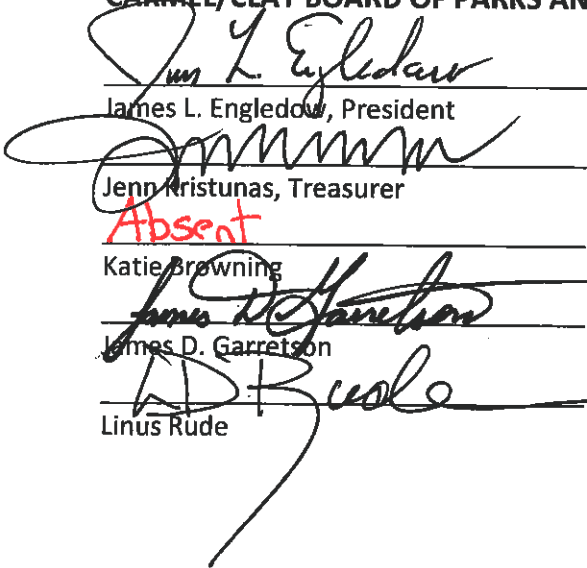 CARMEL/CLAY BOARD OF PARKS AN
Jim L. Engledow
James L. Engledow, President
Jenn Kristunas, Treasurer
Absent
Katie Browning
James D. Garretson
James D. Garretson
Rude
Linus Rude